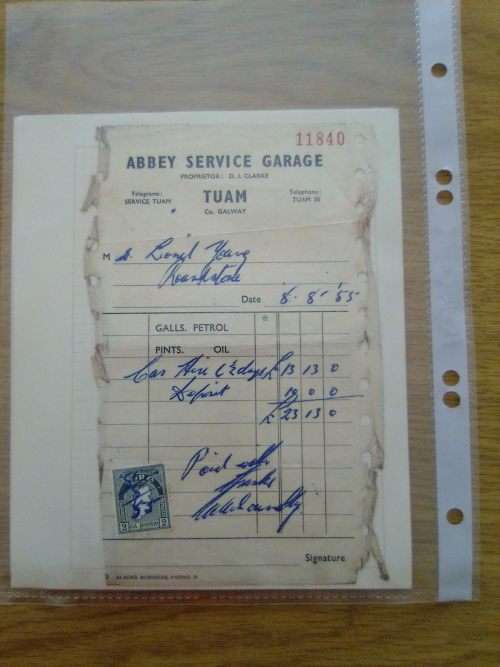 11840
ABBEY SERVICE GARAGE
PROPRIETOR: D. J. CLARKE
Telegrams: SERVICE TUAM
TUAM
Telephone: TUAM 28
Co. GALWAY
M r. Lionel Young
Roundstone
Date 8. 8. '55
GALLS. PETROL
PINTS. OIL
Car Hire 6½ days £ 13 13 0
Deposit 10 0 0
£ 23 13 0
Paid with
thanks
Signature